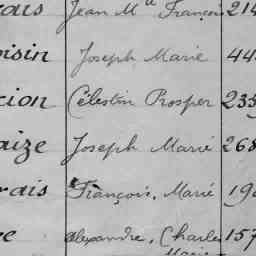 ais Jean M François 214
isin Joseph Marie 44
cion Célestin Prosper 235
aize Joseph Marié 268
rais François, Marié 19
e alexandre, Charles 157